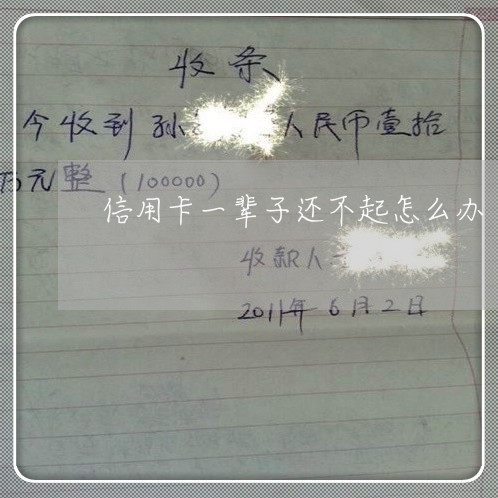 收条
今收到孙 人民币壹拾
万元整（100000）
信用卡一辈子还不起怎么办
收款人
2011年6月2日